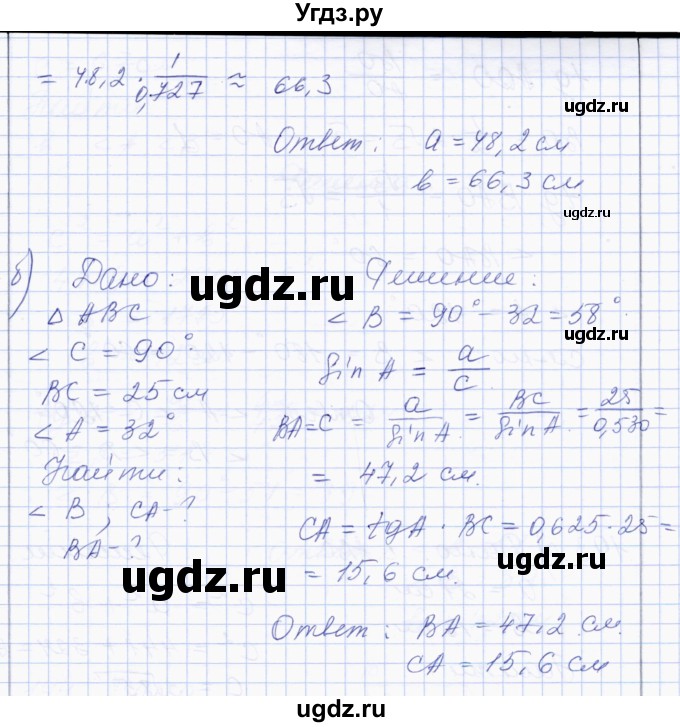 Угдз.ру
= 48,2 · 1/0,727 ≈ 66,3
Ответ: a = 48,2 см
в = 66,3 см
ugdz.ru
б) Дано: Решение:
△ ABC ∠ B = 90° - 32 = 58°
∠ C = 90° Sin A = a/c
BC = 25 см
∠ A = 32° BA = C = a/Sin A = BC/Sin A = 25/0,530 =
Найти: = 47,2 см.
∠ B ; CA - ? CA = tgA · BC = 0,625 · 25 =
BA - ? = 15,6 см.
Ответ: BA = 47,2 см.
CA = 15,6 см
ugdz.ru
ugdz.ru
ugdz.ru
ugdz.ru
ugdz.ru
ugdz.ru
ugdz.ru
ugdz.ru